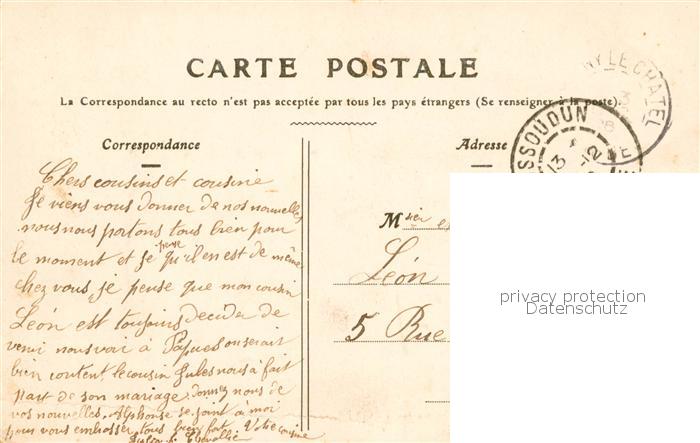 CARTE POSTALE
La Correspondance au recto n'est pas acceptée par tous les pays étrangers (Se renseigner à la poste).
Correspondance
Chers cousins et cousine
Je viens vous donner de nos nouvelles
nous nous portons tous bien pour
le moment et je pense qu'il en est de même
chez vous, je pense que mon cousin
Léon est toujours decider de
venir nous voir à Paques on serait
bien content. le cousin Jules nous à fait
part de son mariage. Donnez nous de
vos nouvelles. Alphonse se joint à moi
pour vous embrasser tous bien fort. Votre cousine
Chevallier
Adresse
Msier et
Léon
5 Rue
ISSOUDUN
13 -12
NY LE CHATEL
privacy protection
Datenschutz